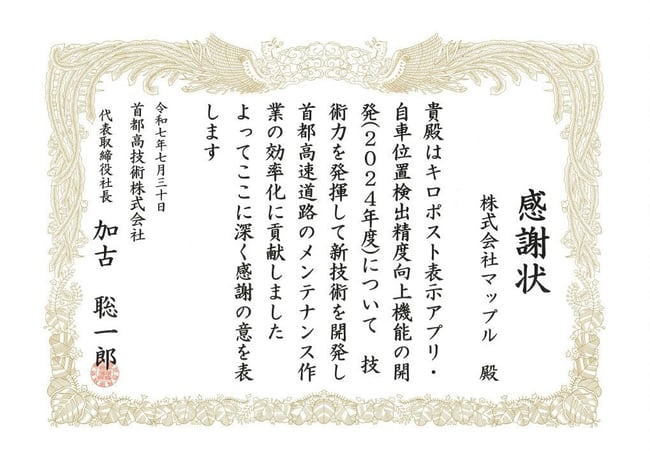 感謝状
株式会社マップル 殿
貴殿はキロポスト表示アプリ・
自車位置検出精度向上機能の開
発(2024年度)について 技
術力を発揮して新技術を開発し
首都高速道路のメンテナンス作
業の効率化に貢献しました
よってここに深く感謝の意を表
します
令和七年七月三十日
首都高技術株式会社
代表取締役社長 加古 聡一郎